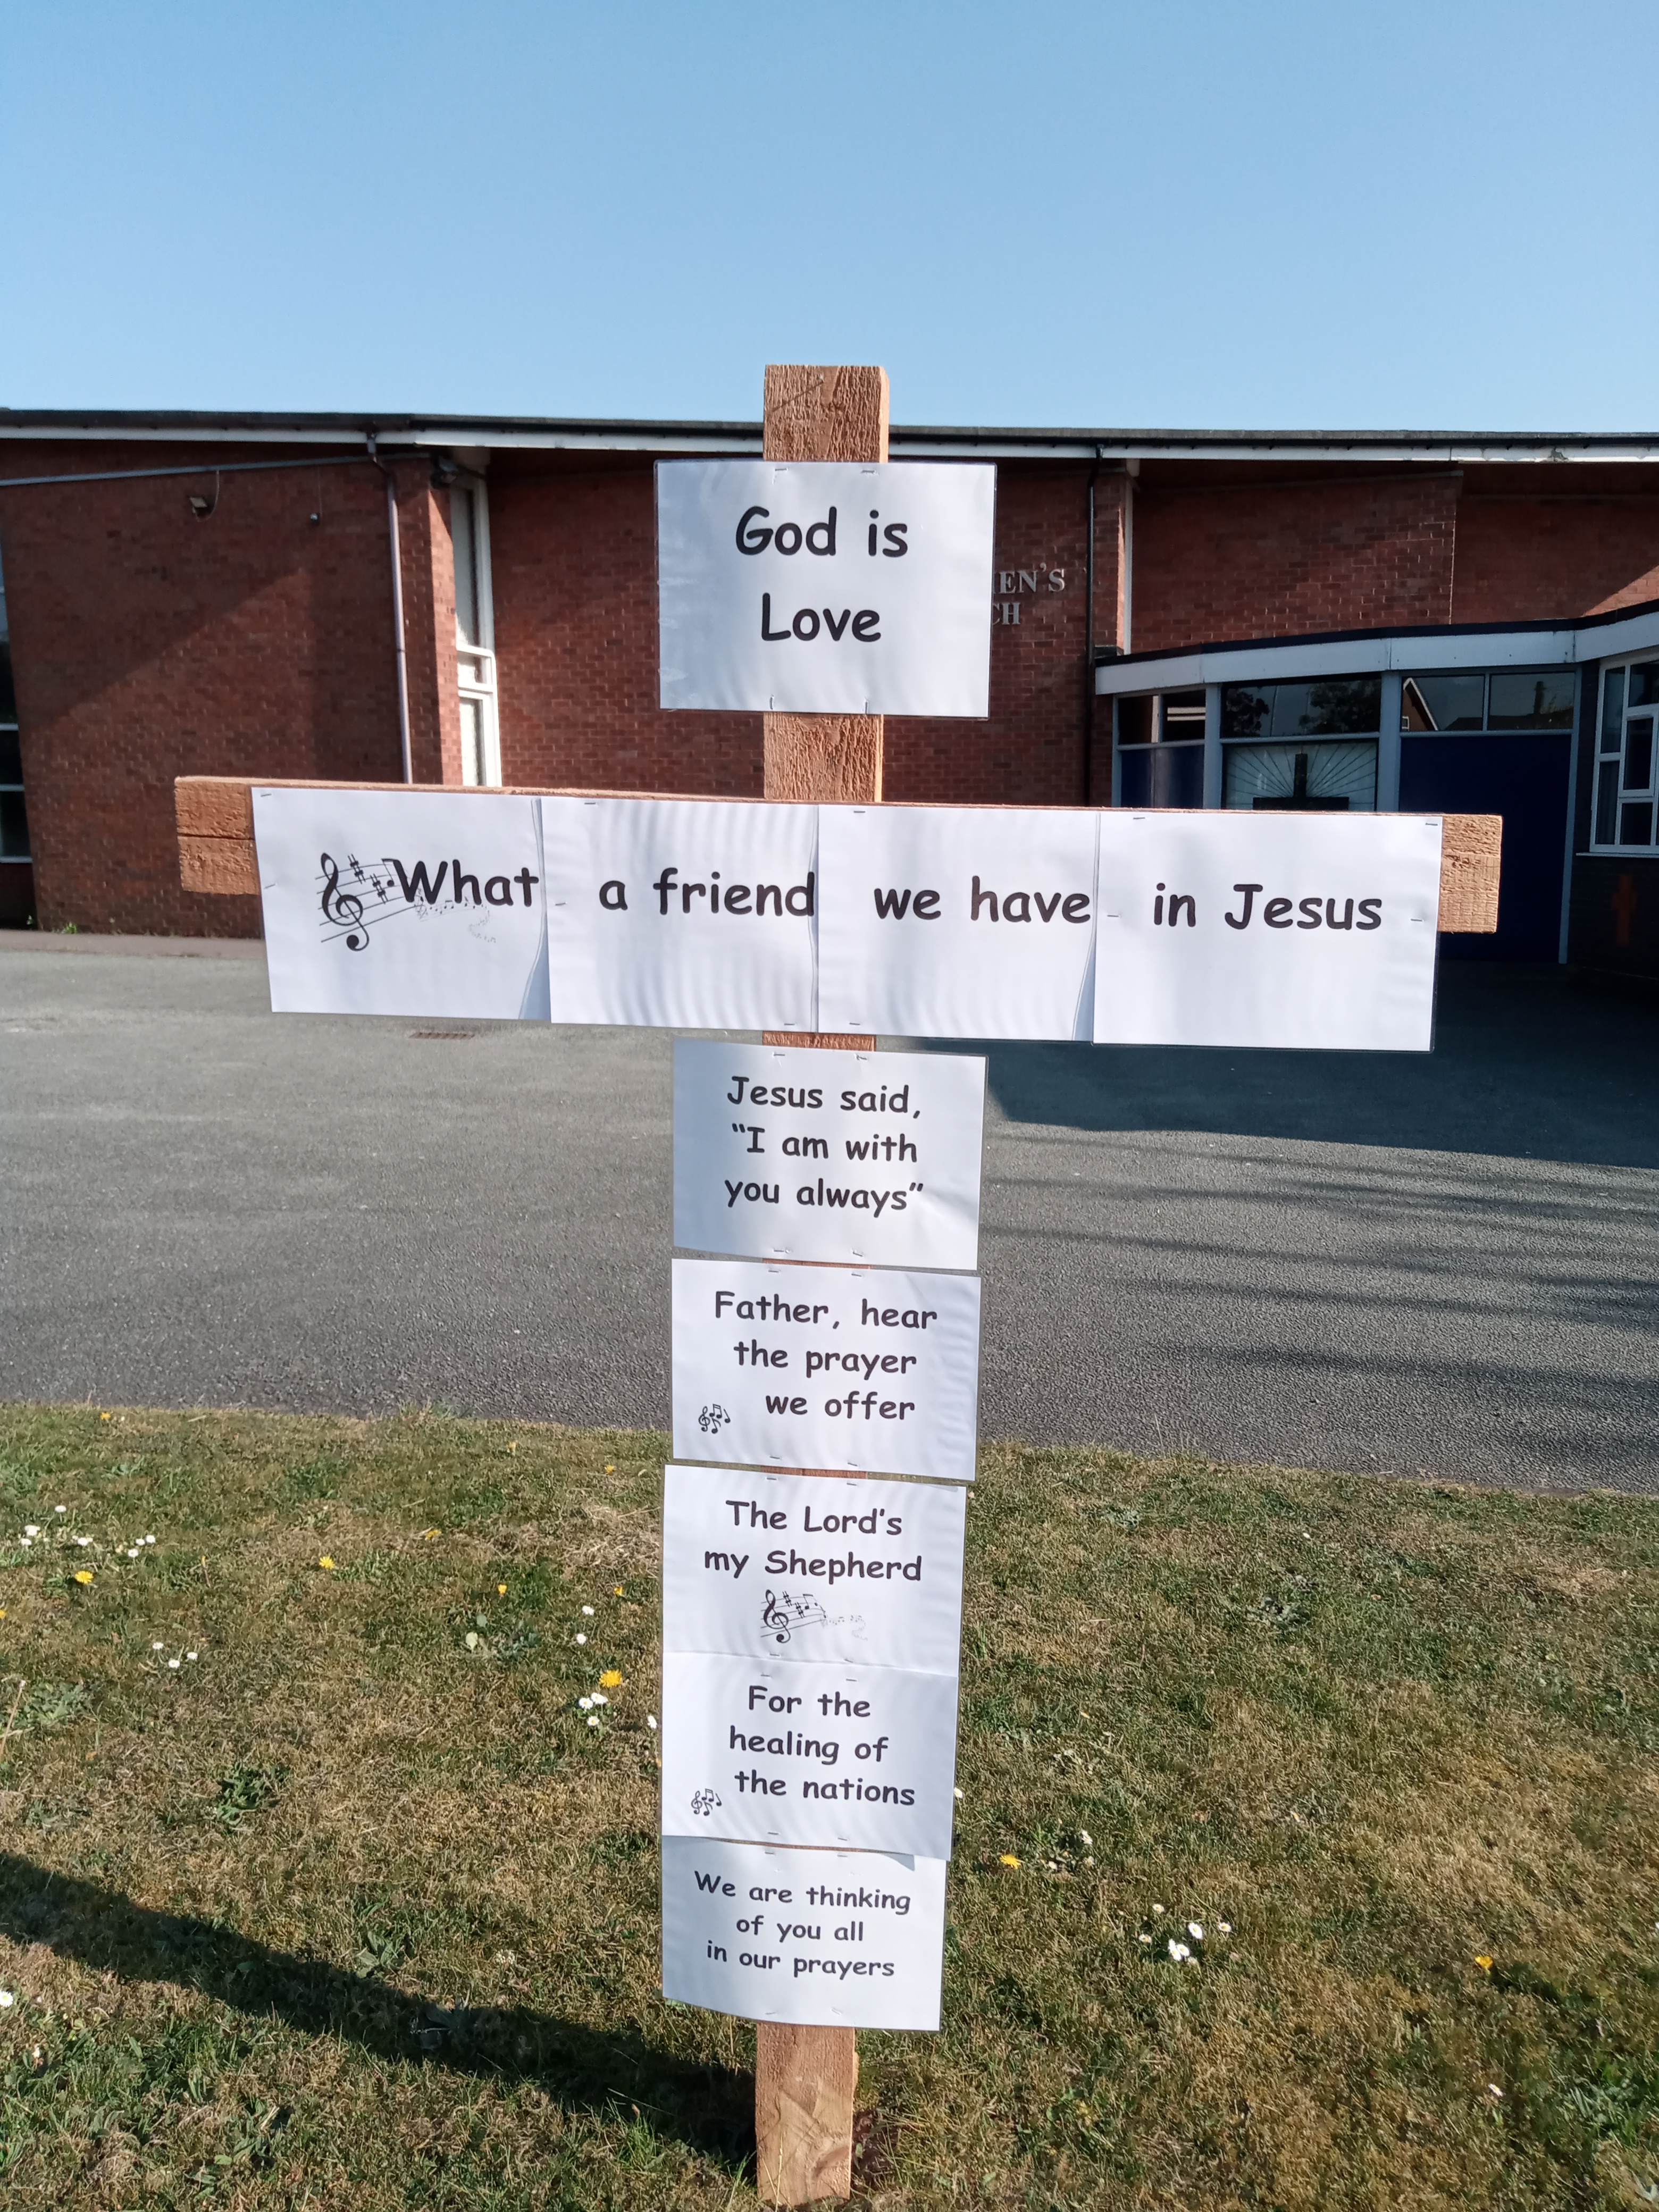 God is
Love
EN'S
CH
What a friend we have in Jesus
Jesus said,
“I am with
you always”
Father, hear
the prayer
we offer
The Lord's
my Shepherd
For the
healing of
the nations
We are thinking
of you all
in our prayers